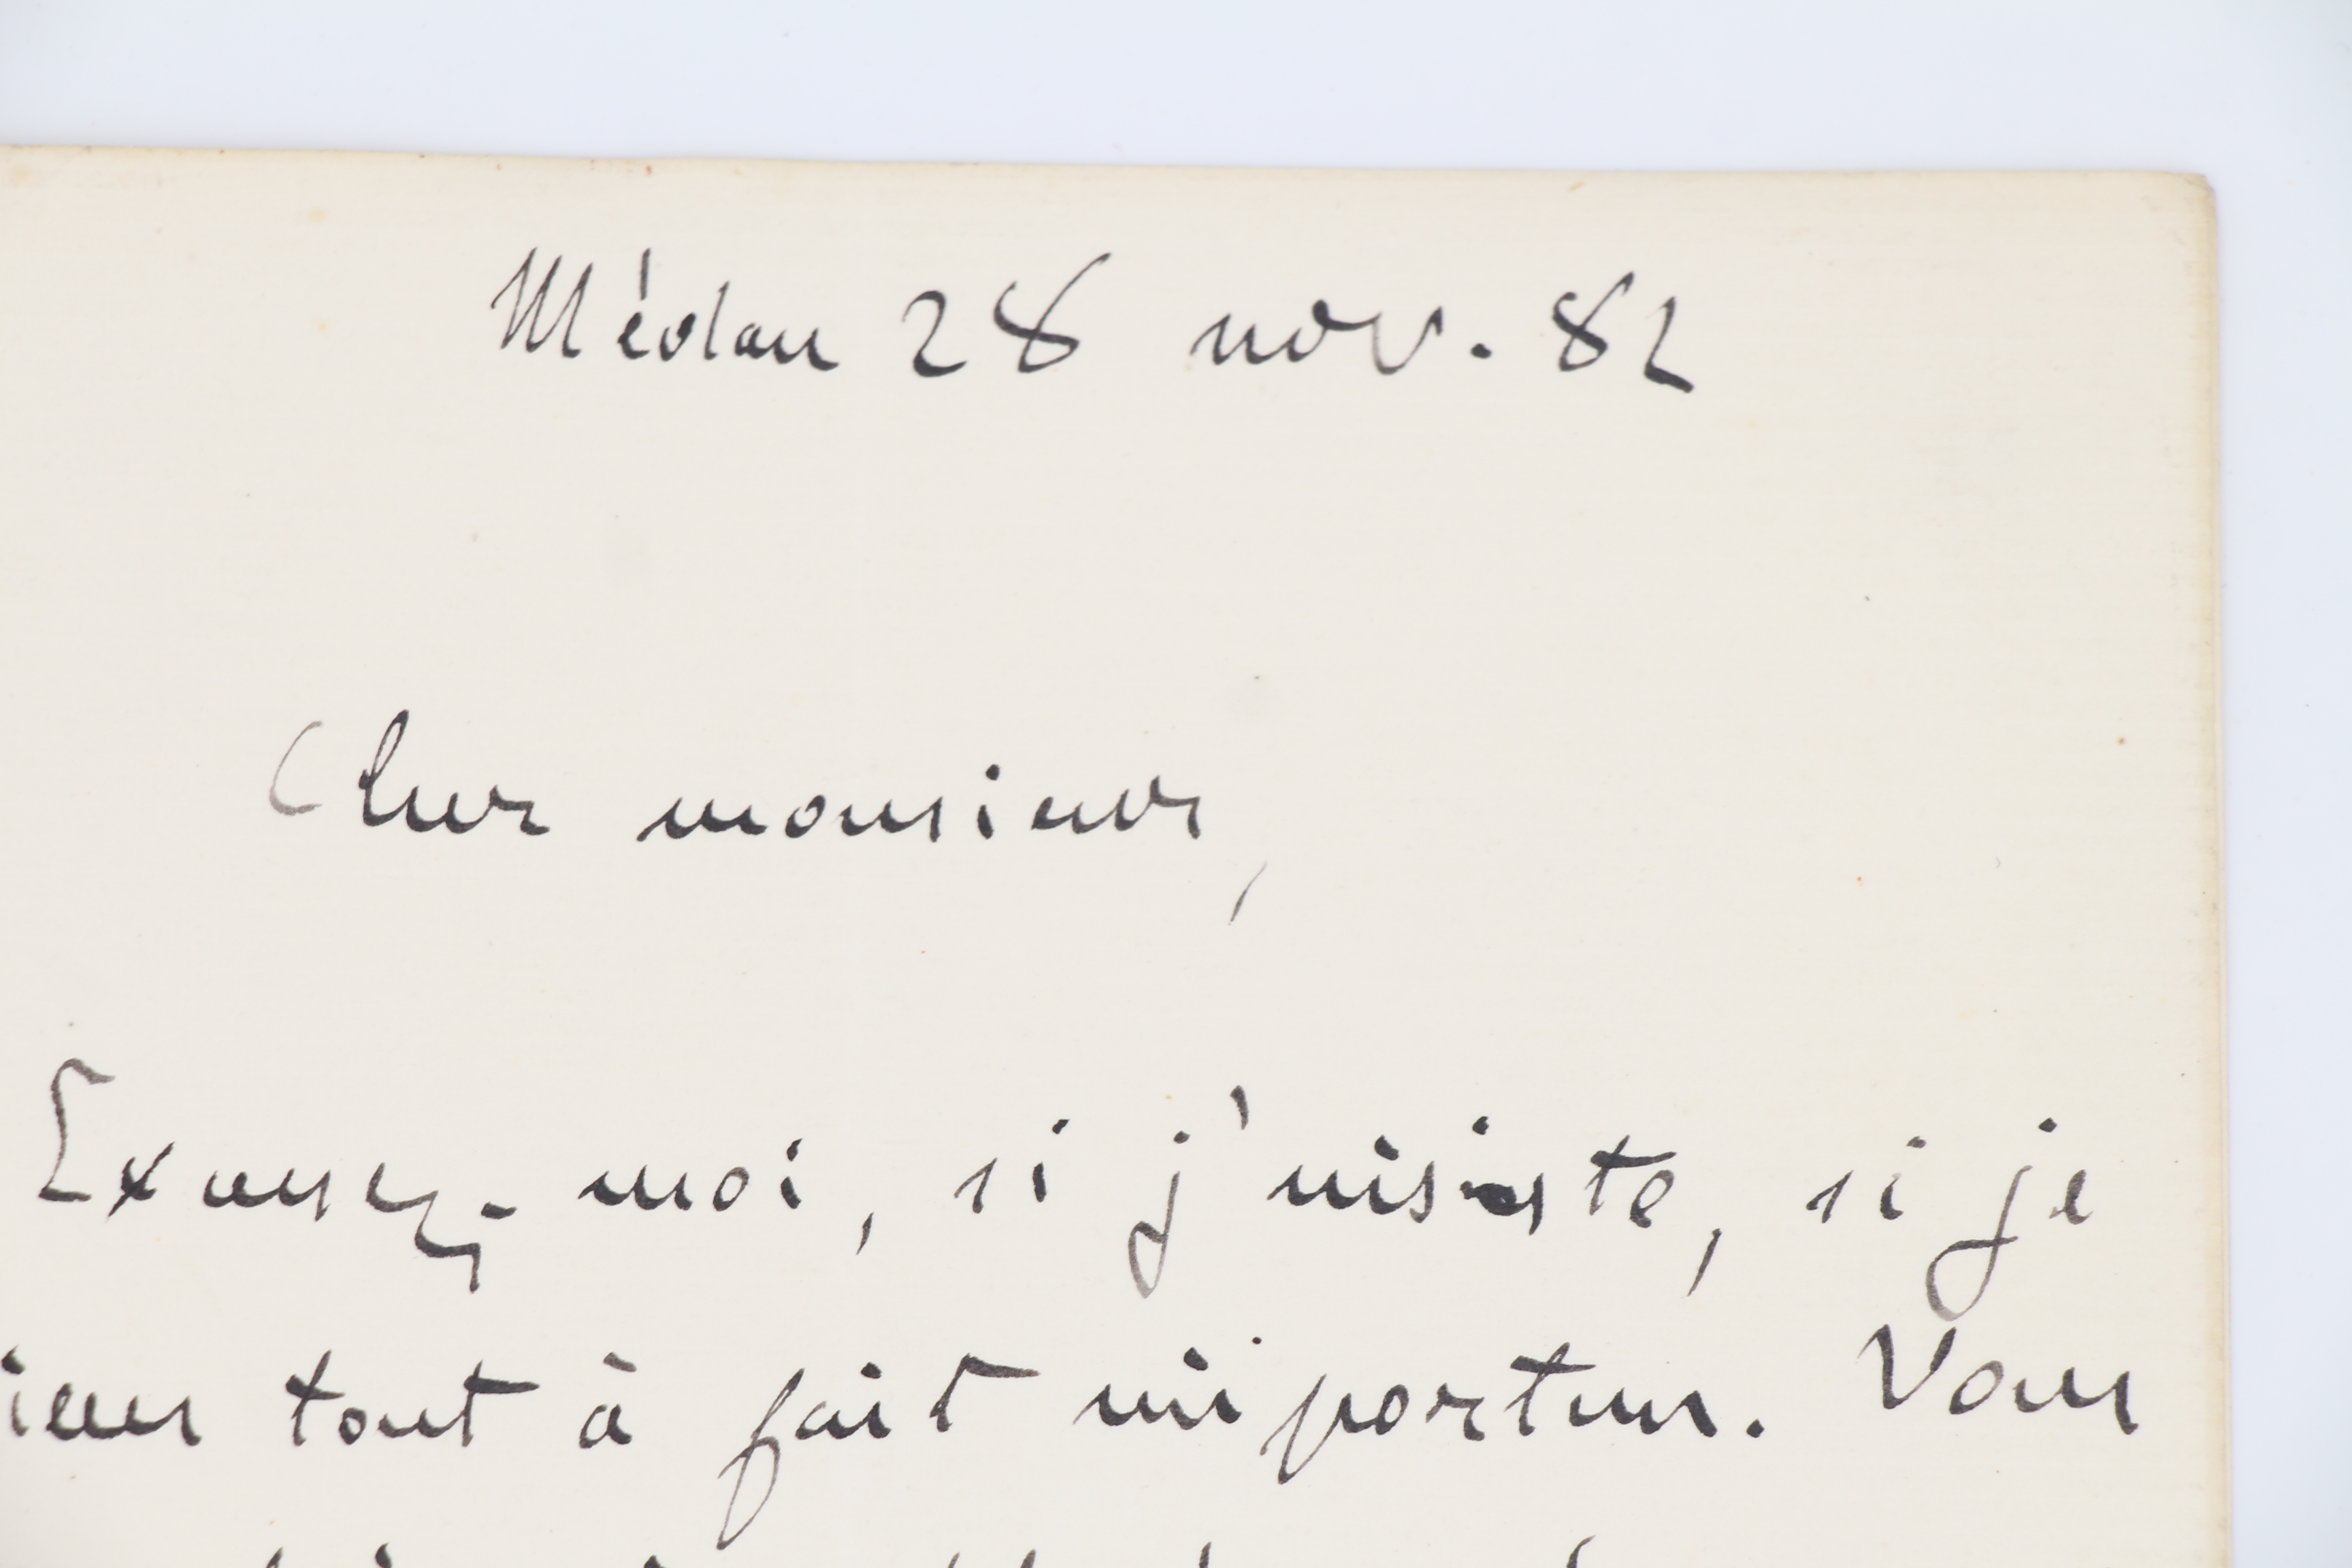 Médan 28 nov. 82
Cher monsieur,
Excusez-moi, si j'insiste, si je
tout à fait importun. Vous